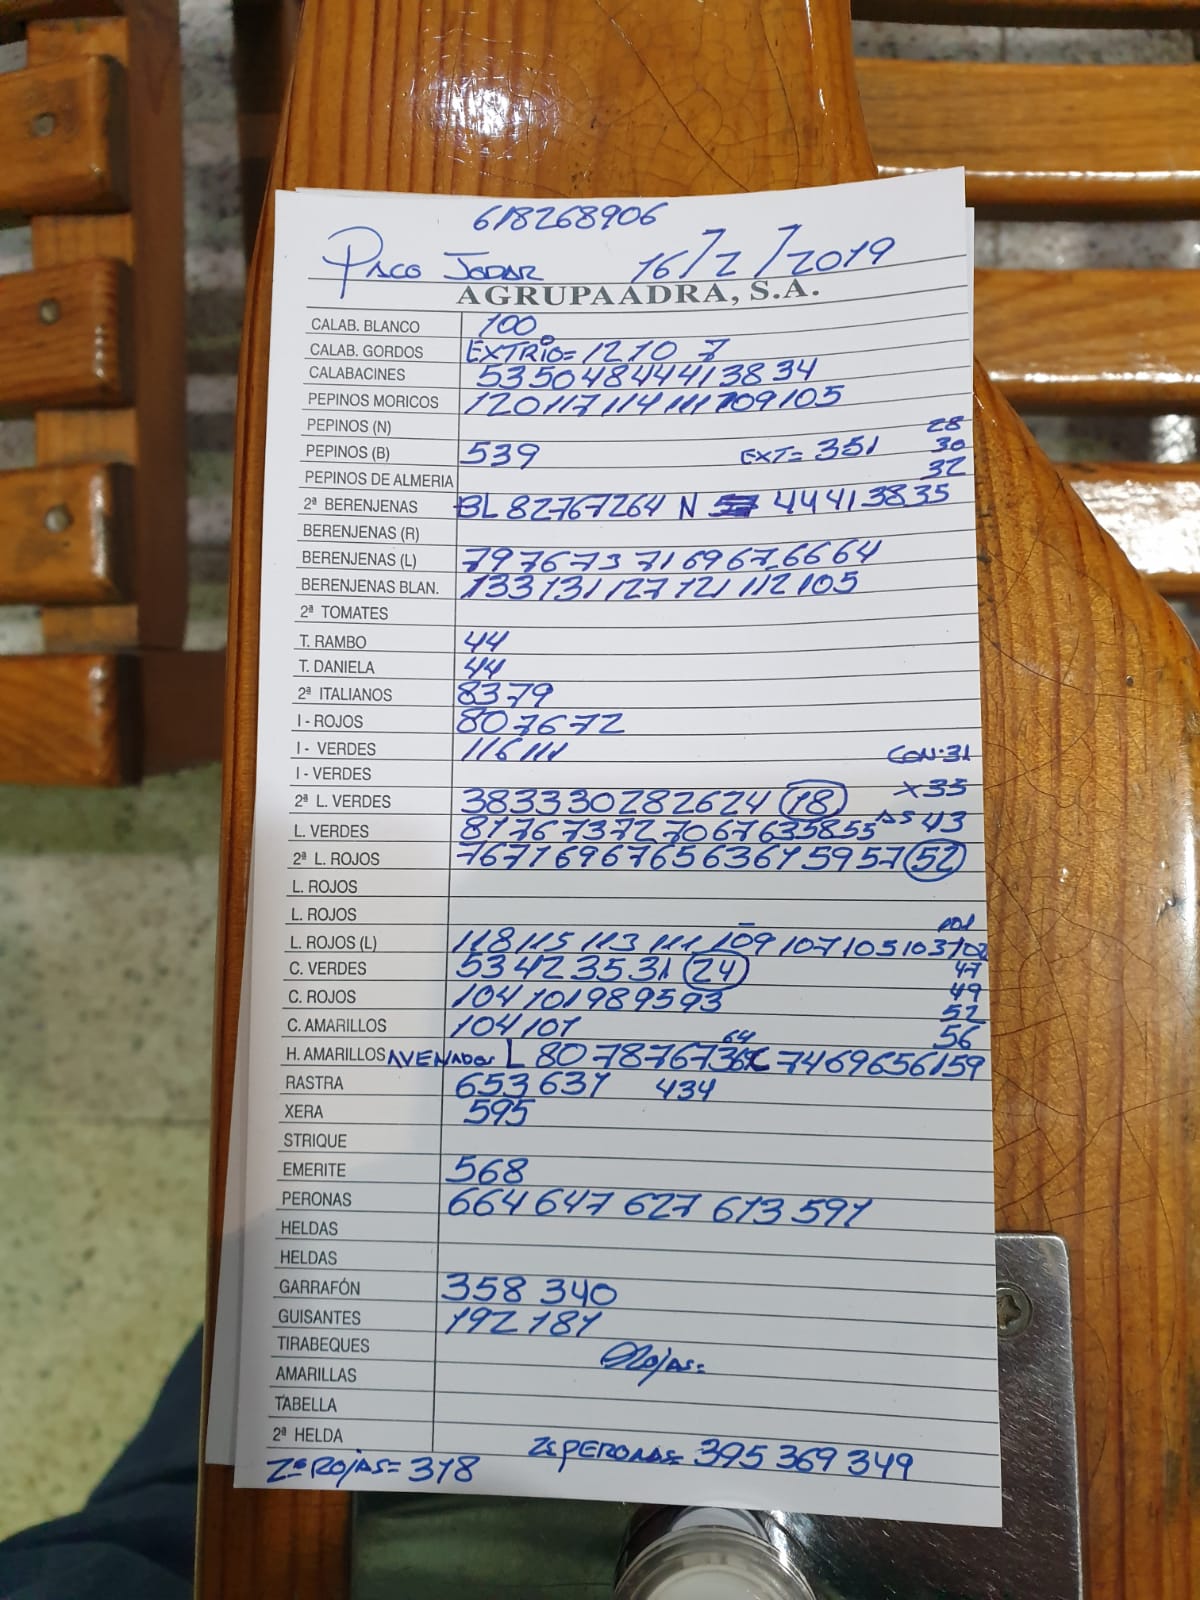 618268906
PACO JODAR 16/2/2019
AGRUPAADRA, S.A.
CALAB. BLANCO 100
CALAB. GORDOS EXTRIO= 12 10 7
CALABACINES 53 50 48 44 41 38 34
PEPINOS MORICOS 120 117 114 111 109 105
PEPINOS (N) 28
PEPINOS (B) 539 EXT= 351 30
PEPINOS DE ALMERIA 32
2ª BERENJENAS BL 82 76 72 64 N 44 41 38 35
BERENJENAS (R)
BERENJENAS (L) 79 76 73 71 69 67 66 64
BERENJENAS BLAN. 133 131 127 121 112 105
2ª TOMATES
T. RAMBO 44
T. DANIELA 44
2ª ITALIANOS 83 79
I - ROJOS 80 76 72
I - VERDES 116 111 CON·31
I - VERDES X 35
2ª L. VERDES 38 33 30 28 26 24 18
L. VERDES 81 76 73 72 70 67 63 58 55 AS 43
2ª L. ROJOS 76 71 69 67 65 63 61 59 57 52
L. ROJOS
L. ROJOS 101
L. ROJOS (L) 118 115 113 111 109 107 105 103 102
C. VERDES 53 42 35 31 24 47
C. ROJOS 104 101 98 95 93 49
52
C. AMARILLOS 104 101 64 56
H. AMARILLOS AVENADOS L 80 78 76 73 74 69 65 61 59
RASTRA 653 631 434
XERA 595
STRIQUE
EMERITE 568
PERONAS 664 647 627 613 591
HELDAS
HELDAS
GARRAFÓN 358 340
GUISANTES 192 181
TIRABEQUES
AMARILLAS
TABELLA
2ª HELDA
2ª PERONAS= 395 369 349
2ª ROJAS= 318